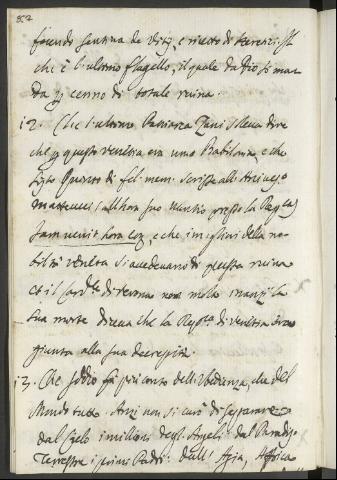 facendo sentina de vitij, e ricetto di heretici. Il
che è l'ultimo flagello, il quale da Dio si man
da per cenno di totale ruina.
12. Che l'ultimo Patriarca Zani soleva dire
che per questo Venetia era una Babilonia, e che
Sisto Quarto di fel. mem. scrisse all'
Matteucci (allhora suo Nuntio presso la Rep.ca)
Iam venit hora eorum, e che i migliori della no-
biltà Veneta si avedevano di questa ruina
et il Card.le di Verona non molto inanzi la
sua morte diceva che la Rep.ca di Venetia era
giunta alla sua decrepità.
13. Che Iddio fa più conto dell'Ubedienza, che del
Mondo tutto. Anzi non si curò di
dal Cielo i milioni degl'Angeli: dal Paradiso
Terrestre i primi Padri: dall'Asia, Africa